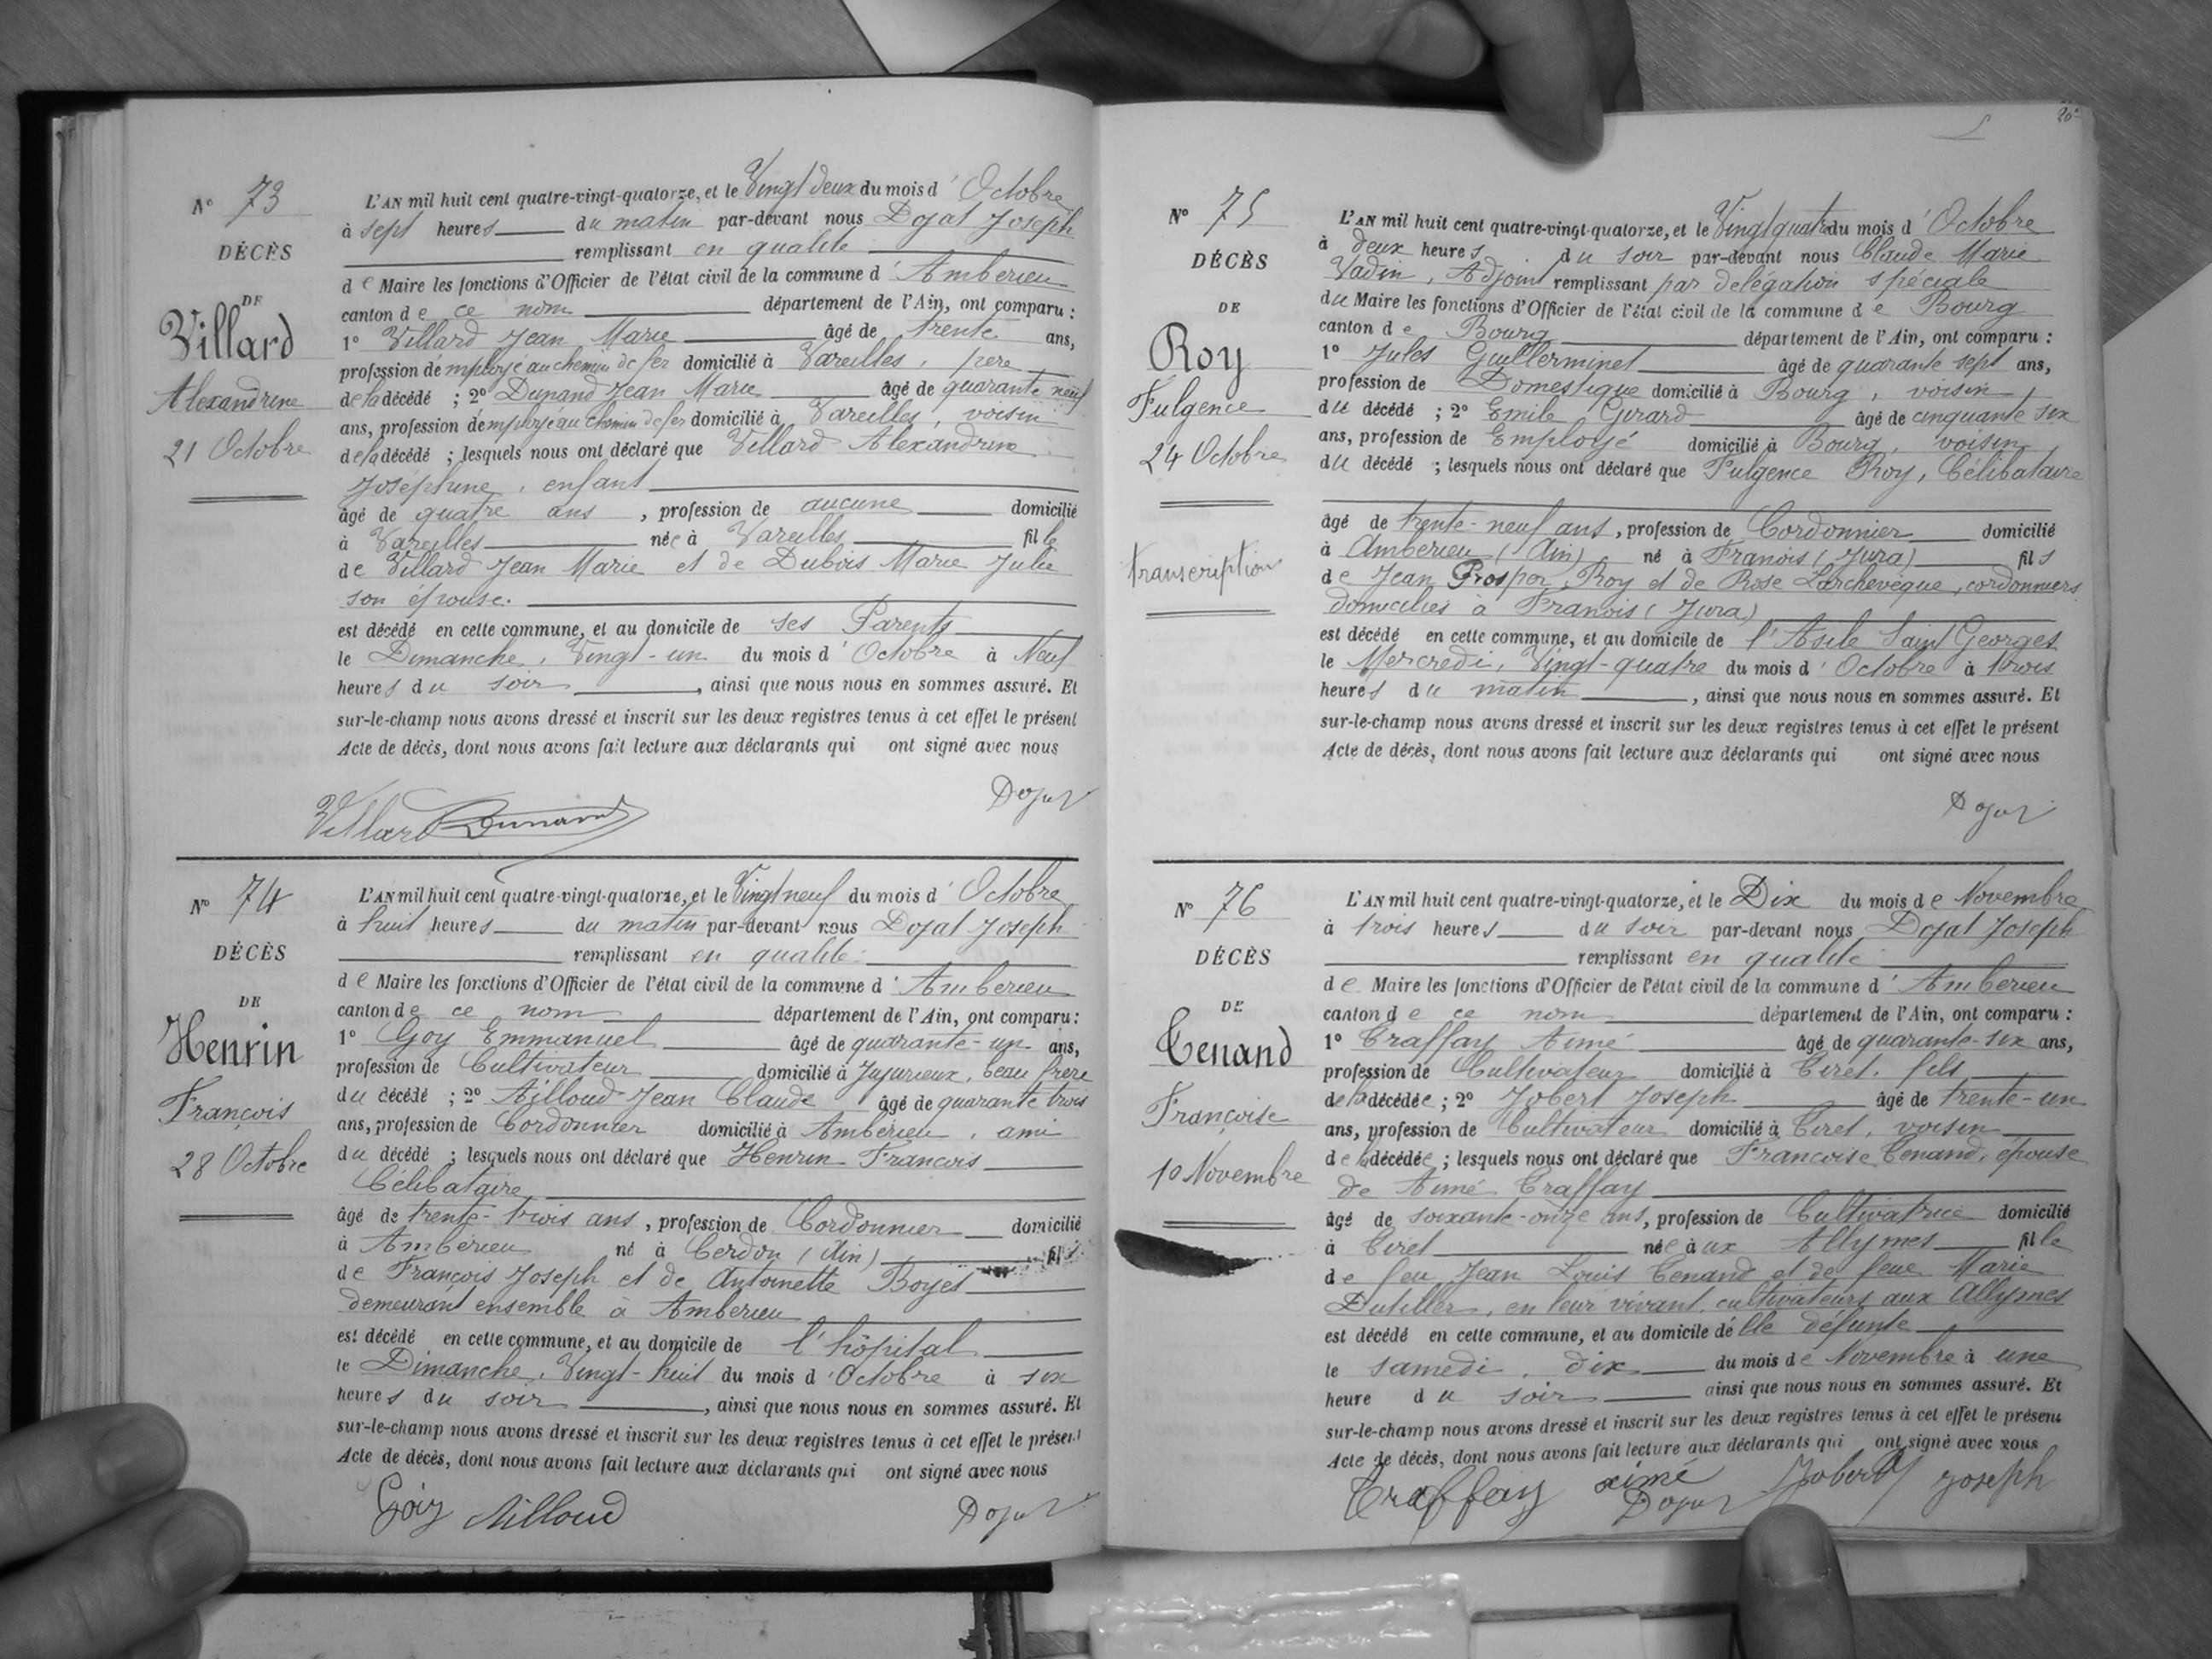 N° 73
DÉCÈS
DE
Villard
Alexandrine
21 Octobre
L'AN mil huit cent quatre-vingt-quatorze, et le Vingt deux du mois d'Octobre
à sept heures du matin par-devant nous Dojat Joseph
remplissant en qualité
de Maire les fonctions d'Officier de l'état civil de la commune d'Amberieu
canton de ce nom département de l'Ain, ont comparu :
1° Villard Jean Marie âgé de trente ans,
profession d'employé au chemin de fer domicilié à Vareilles, pere
de la décédé ; 2° Dunand Jean Marie âgé de quarante neuf
ans, profession d'employé au chemin de fer domicilié à Vareilles, voisin
de la décédé ; lesquels nous ont déclaré que Villard Alexandrine
Joséphine, enfant
âgé de quatre ans, profession de aucune domicilié
à Vareilles née à Vareilles fille
de Villard Jean Marie et de Dubois Marie Julie
son épouse.
est décédé en cette commune, et au domicile de ses Parents
le Dimanche, Vingt-un du mois d'Octobre à Neuf
heures du soir, ainsi que nous nous en sommes assuré. Et
sur-le-champ nous avons dressé et inscrit sur les deux registres tenus à cet effet le présent
Acte de décès, dont nous avons fait lecture aux déclarants qui ont signé avec nous
Dojat
Villard Dunand
N° 74
DÉCÈS
DE
Henrin
François
28 Octobre
L'AN mil huit cent quatre-vingt-quatorze, et le Vingt neuf du mois d'Octobre
à huit heures du matin par-devant nous Dojat Joseph
remplissant en qualité
de Maire les fonctions d'Officier de l'état civil de la commune d'Amberieu
canton de ce nom département de l'Ain, ont comparu :
1° Goy Emmanuel âgé de quarante-un ans,
profession de Cultivateur domicilié à Jujurieux, beau frère
du décédé ; 2° Ailloud Jean Claude âgé de quarante trois
ans, profession de Cordonnier domicilié à Amberieu, ami
du décédé ; lesquels nous ont déclaré que Henrin François
Célibataire
âgé de trente-trois ans, profession de Cordonnier domicilié
à Amberieu né à Cerdon (Ain) fils
de François Joseph et de Antoinette Boyet
demeurant ensemble à Amberieu
est décédé en cette commune, et au domicile de l'hôpital
le Dimanche, Vingt-huit du mois d'Octobre à six
heures du soir, ainsi que nous nous en sommes assuré. Et
sur-le-champ nous avons dressé et inscrit sur les deux registres tenus à cet effet le présent
Acte de décès, dont nous avons fait lecture aux déclarants qui ont signé avec nous
Goy Ailloud Dojat
N° 75
DÉCÈS
DE
Roy
Fulgence
24 Octobre
transcription
L'AN mil huit cent quatre-vingt-quatorze, et le Vingt quatre du mois d'Octobre
à deux heures du soir par-devant nous Claude Marie
Vadin, Adjoint remplissant par délégation spéciale
du Maire les fonctions d'Officier de l'état civil de la commune de Bourg
canton de Bourg département de l'Ain, ont comparu :
1° Jules Guillerminet âgé de quarante sept ans,
profession de Domestique domicilié à Bourg, voisin
du décédé ; 2° Emile Girard âgé de cinquante six
ans, profession de Employé domicilié à Bourg, voisin
du décédé ; lesquels nous ont déclaré que Fulgence Roy, Célibataire
âgé de trente-neuf ans, profession de Cordonnier domicilié
à Amberieu (Ain) né à Franois (Jura) fils
de Jean Prosper Roy et de Rose Larchevêque, cordonniers
domicilies à Franois (Jura)
est décédé en cette commune, et au domicile de l'Asile Saint Georges
le Mercredi, Vingt-quatre du mois d'Octobre à trois
heures du matin, ainsi que nous nous en sommes assuré. Et
sur-le-champ nous avons dressé et inscrit sur les deux registres tenus à cet effet le présent
Acte de décès, dont nous avons fait lecture aux déclarants qui ont signé avec nous
Dojat
N° 76
DÉCÈS
DE
Tenand
Françoise
10 Novembre
L'AN mil huit cent quatre-vingt-quatorze, et le Dix du mois de Novembre
à trois heures du soir par-devant nous Dojat Joseph
remplissant en qualité
de Maire les fonctions d'Officier de l'état civil de la commune d'Amberieu
canton de ce nom département de l'Ain, ont comparu :
1° Traffay Aimé âgé de quarante-six ans,
profession de Cultivateur domicilié à Tiret, fils
de la décédée ; 2° Jobert Joseph âgé de trente-un
ans, profession de Cultivateur domicilié à Tiret, voisin
de la décédée ; lesquels nous ont déclaré que Françoise Tenand, épouse
de Aimé Traffay
âgé de soixante-onze ans, profession de Cultivatrice domicilié
à Tiret née aux Allymes fille
de feu Jean Louis Tenand et de feue Marie
Dutiller, en leur vivant, cultivateurs aux Allymes
est décédé en cette commune, et au domicile de lle défunte
le samedi, dix du mois de Novembre à une
heure du soir ainsi que nous nous en sommes assuré. Et
sur-le-champ nous avons dressé et inscrit sur les deux registres tenus à cet effet le présent
Acte de décès, dont nous avons fait lecture aux déclarants qui ont signé avec nous
Traffay aimé Jobert Joseph
Dojat